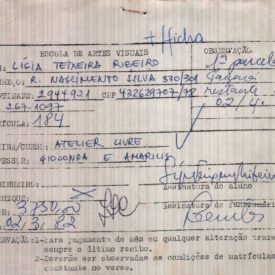 + Hidro
ESCOLA DE ARTES VISUAIS
OBSERVAÇÃO
: LIGIA TEIXEIRA RIBEIRO
1ª parcela
ENDEREÇO: R. NASCIMENTO SILVA 370/301
IDENTIDADE: 2944921 CPF 432629707/78
restante
267-1097
02/4.
MATRÍCULA: 184
/CURSO: ATELIER LIVRE
PROFESSOR: GIOCONDA E AMARILIS
DINHEIRO:
Assinatura do aluno
CHEQUE: X
3750,00
Assinatura do funcionário
02/3/82
OBSERVAÇÃO: 1-Para pagamento do mês ou qualquer alteração trazer
sempre o último recibo.
2-Deverão ser observadas as condições de matrícula
constante no verso.